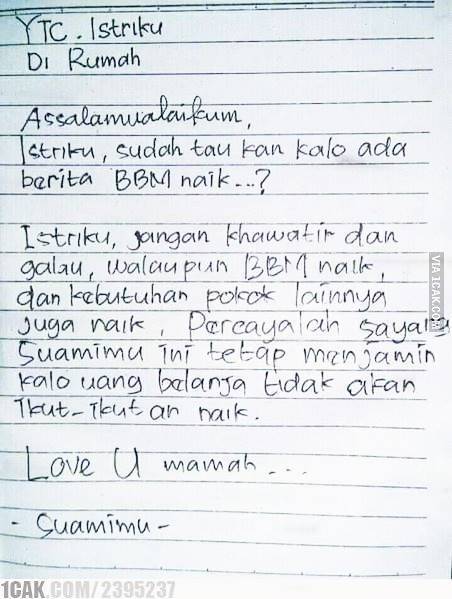 YTC. Istriku
Di Rumah
Assalamualaikum,
Istriku, sudah tau kan kalo ada
berita BBM naik...?
Istriku, jangan khawatir dan
galau, walaupun BBM naik,
dan kebutuhan pokok lainnya
juga naik, Percayalah sayang
Suamimu ini tetap menjamin
kalo uang belanja tidak akan
ikut-ikutan naik.
Love U mamah...
- Suamimu -
VIA 1CAK.COM
1CAK.COM/2395237